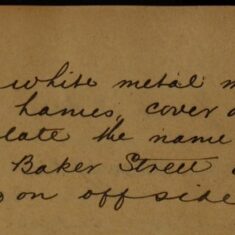 white metal m
hames, cover a
late the name
Baker Street
on off side